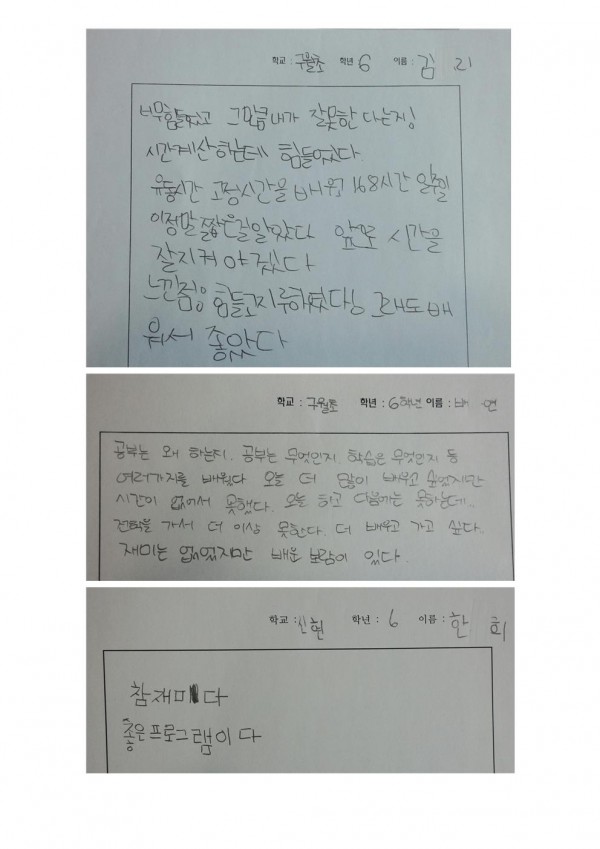 학교 : 구월초 학년 6 이름 : 김 리
너무힘들었고 그만큼내가 잘못한 다는지!
시간계산하는데 힘들었다.
유동시간 고정시간을 배워 168시간 일주일
이정말 짧은걸알았다 앞으로 시간을
잘지켜야겠다
느낀점은 힘들고지루하였다 그래도 배
워서 좋았다
학교 : 구월초 학년 : 6학년 이름 : 배 연
공부는 왜 하는지. 공부는 무엇인지. 학습은 무엇인지 등
여러가지를 배웠다 오늘 더 많이 배우고 싶었지만
시간이 없어서 못했다. 오늘 하고 다음에는 못하는데..
전학을 가서 더 이상 못한다. 더 배우고 가고 싶다..
재미는 없었지만 배운 보람이 있다.
학교 : 신현 학년 : 6 이름 : 한 희
참재미다
좋은프로그램이다